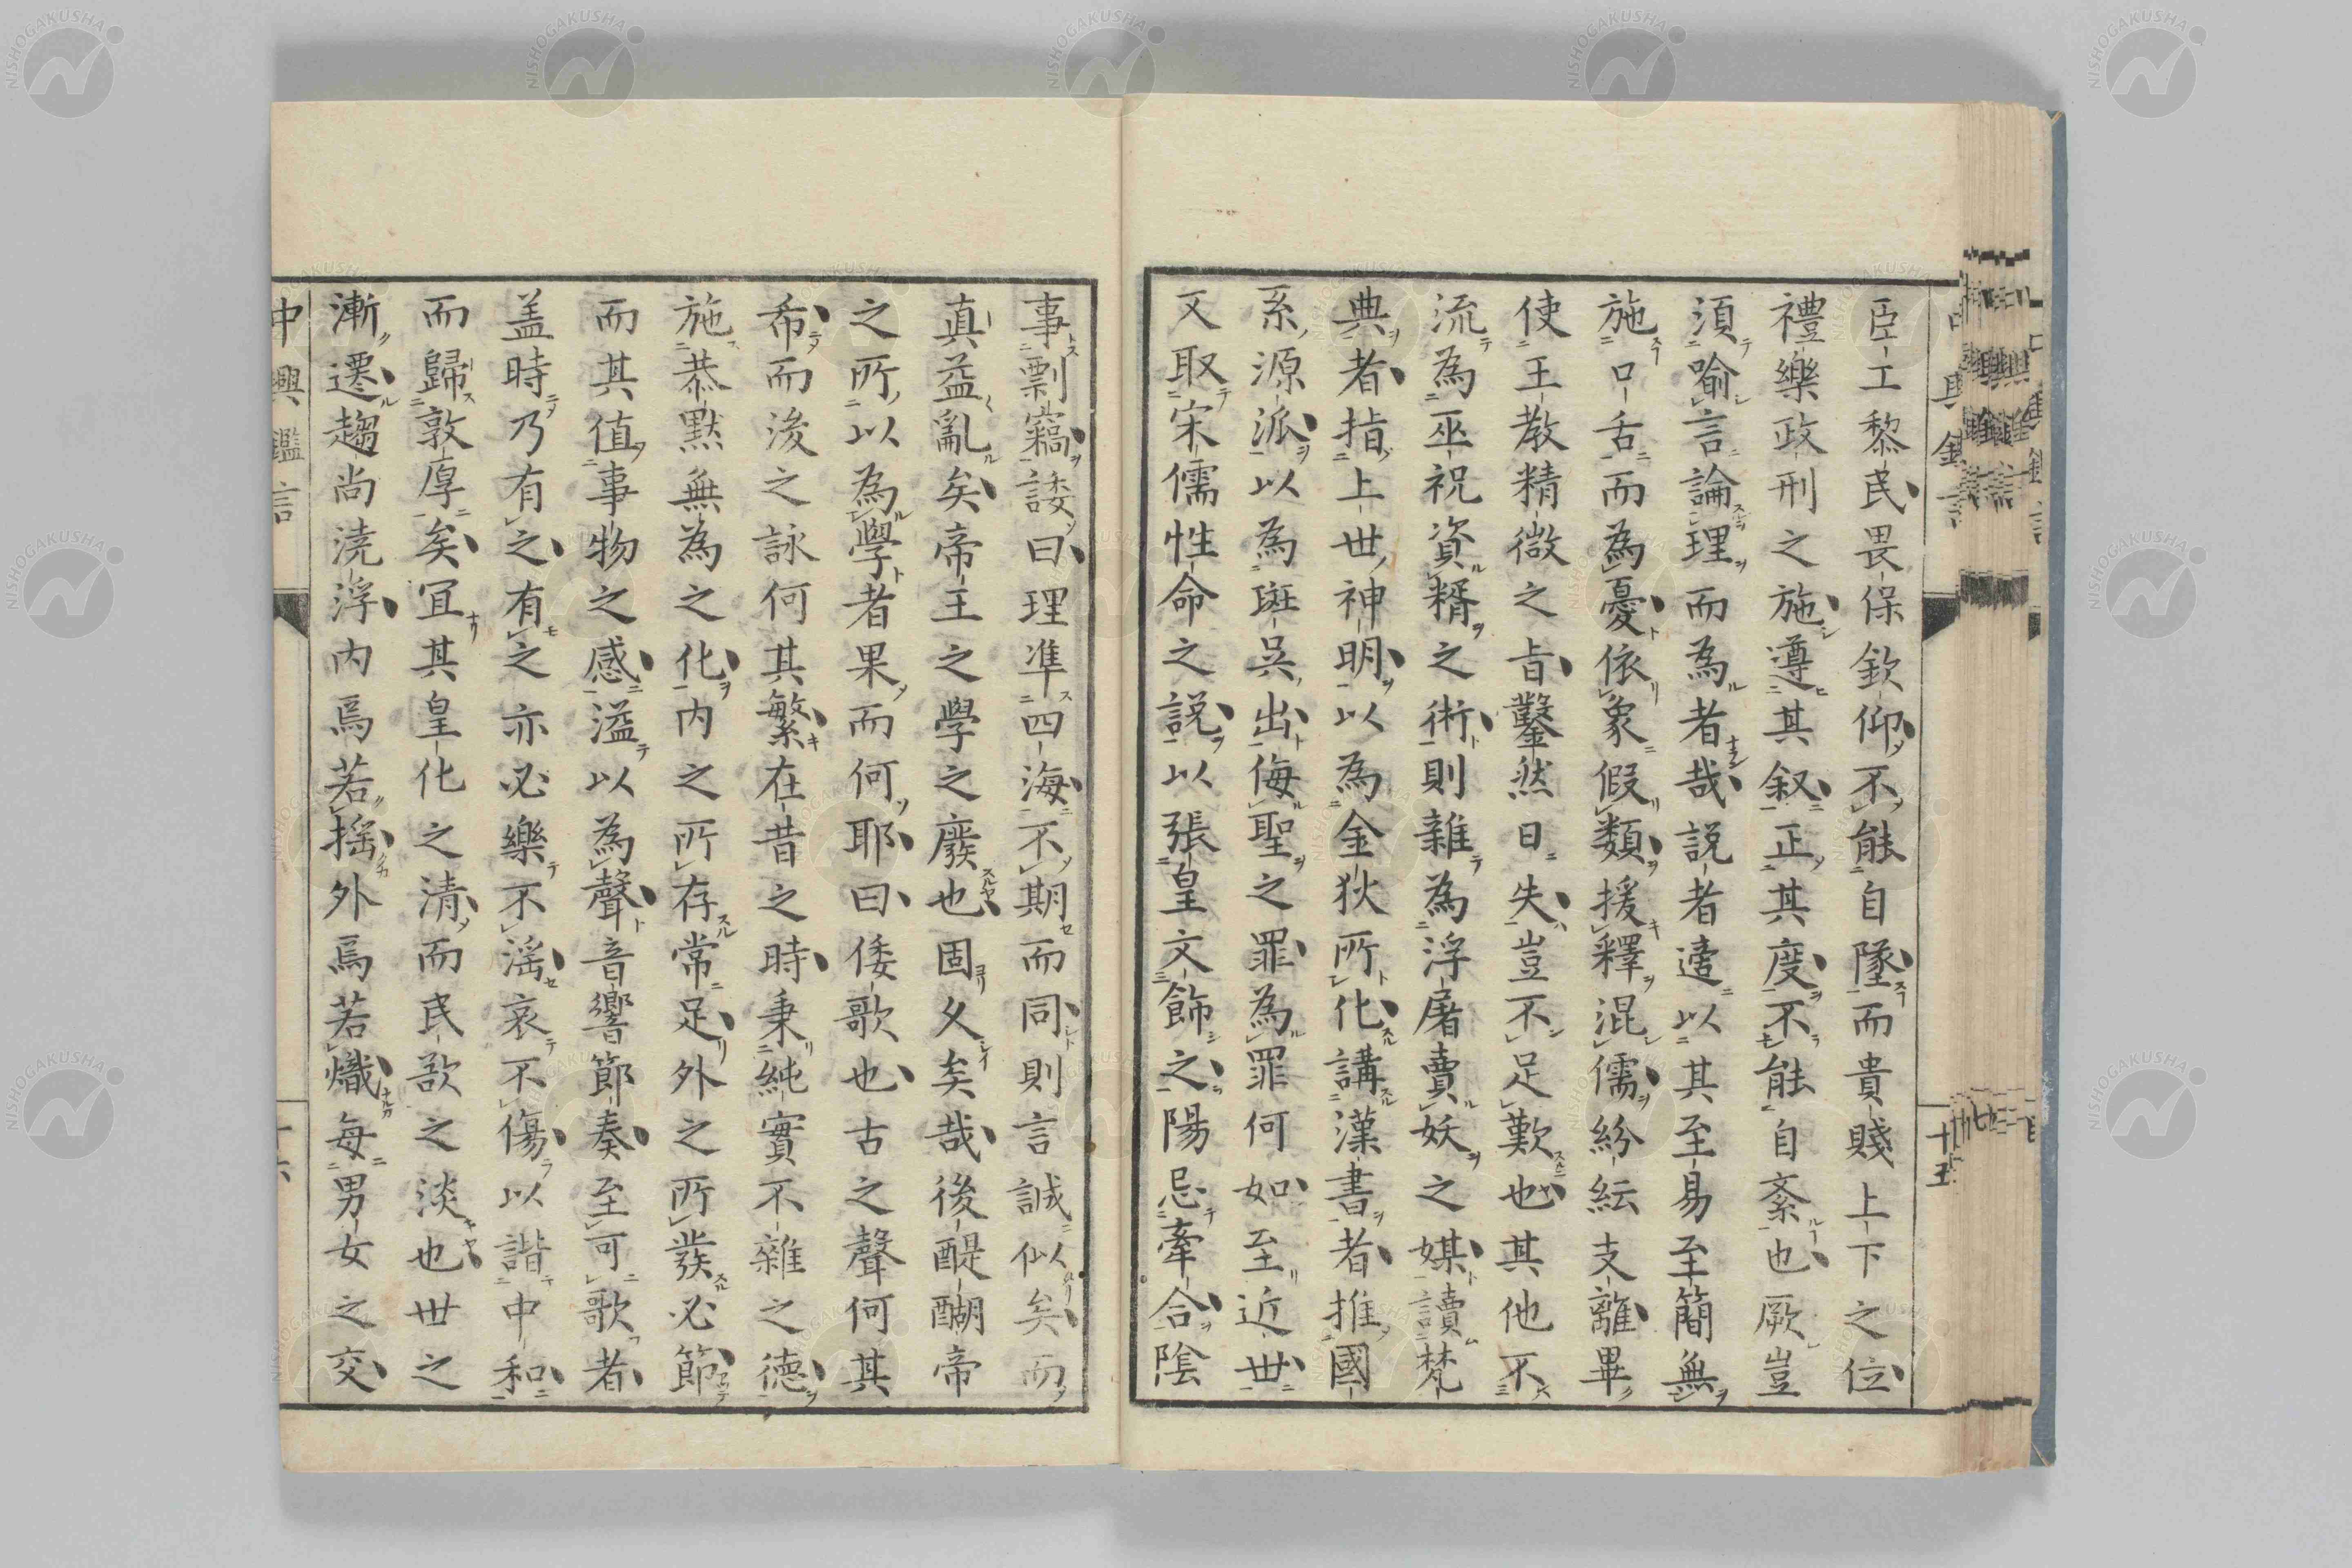 臣工黎民畏保欽仰不能自墜而貴賤上下之位
禮樂政刑之施遵其叙正其度不能自紊也厥豈
須喻言論理而為者哉説者遑以其至易至簡無
施口舌而為憂依象假類援釋混儒紛紜支離畢
使王教精微之旨鑿然日失豈不足歎也其他不
流為巫祝資糈之術則雜為浮屠賣妖之媒讀梵
典者指上世神明以為金狄所化講漢書者推國
系源派以為斑吳出侮聖之罪為罪何如至近世
又取宋儒性命之説以張皇文飾之陽忌牽合陰
事剽竊諉曰理準四海不期而同則言誠似矣而
真益亂矣帝王之學之廢也固久矣哉後醍醐帝
之所以為學者果而何耶曰倭歌也古之聲何其
希而後之詠何其繁在昔之時秉純實不雜之德
施恭默無為之化内之所存常足外之所發必節
而其值事物之感溢以為聲音響節奏至可歌者
盖時乃有之有之亦必樂不滛哀不傷以諧中和
而歸敦厚矣宜其皇化之清而民歆之淡也世之
漸遷趨尚澆浮内焉若揺外焉若熾每男女之交
中興鑑言
十五